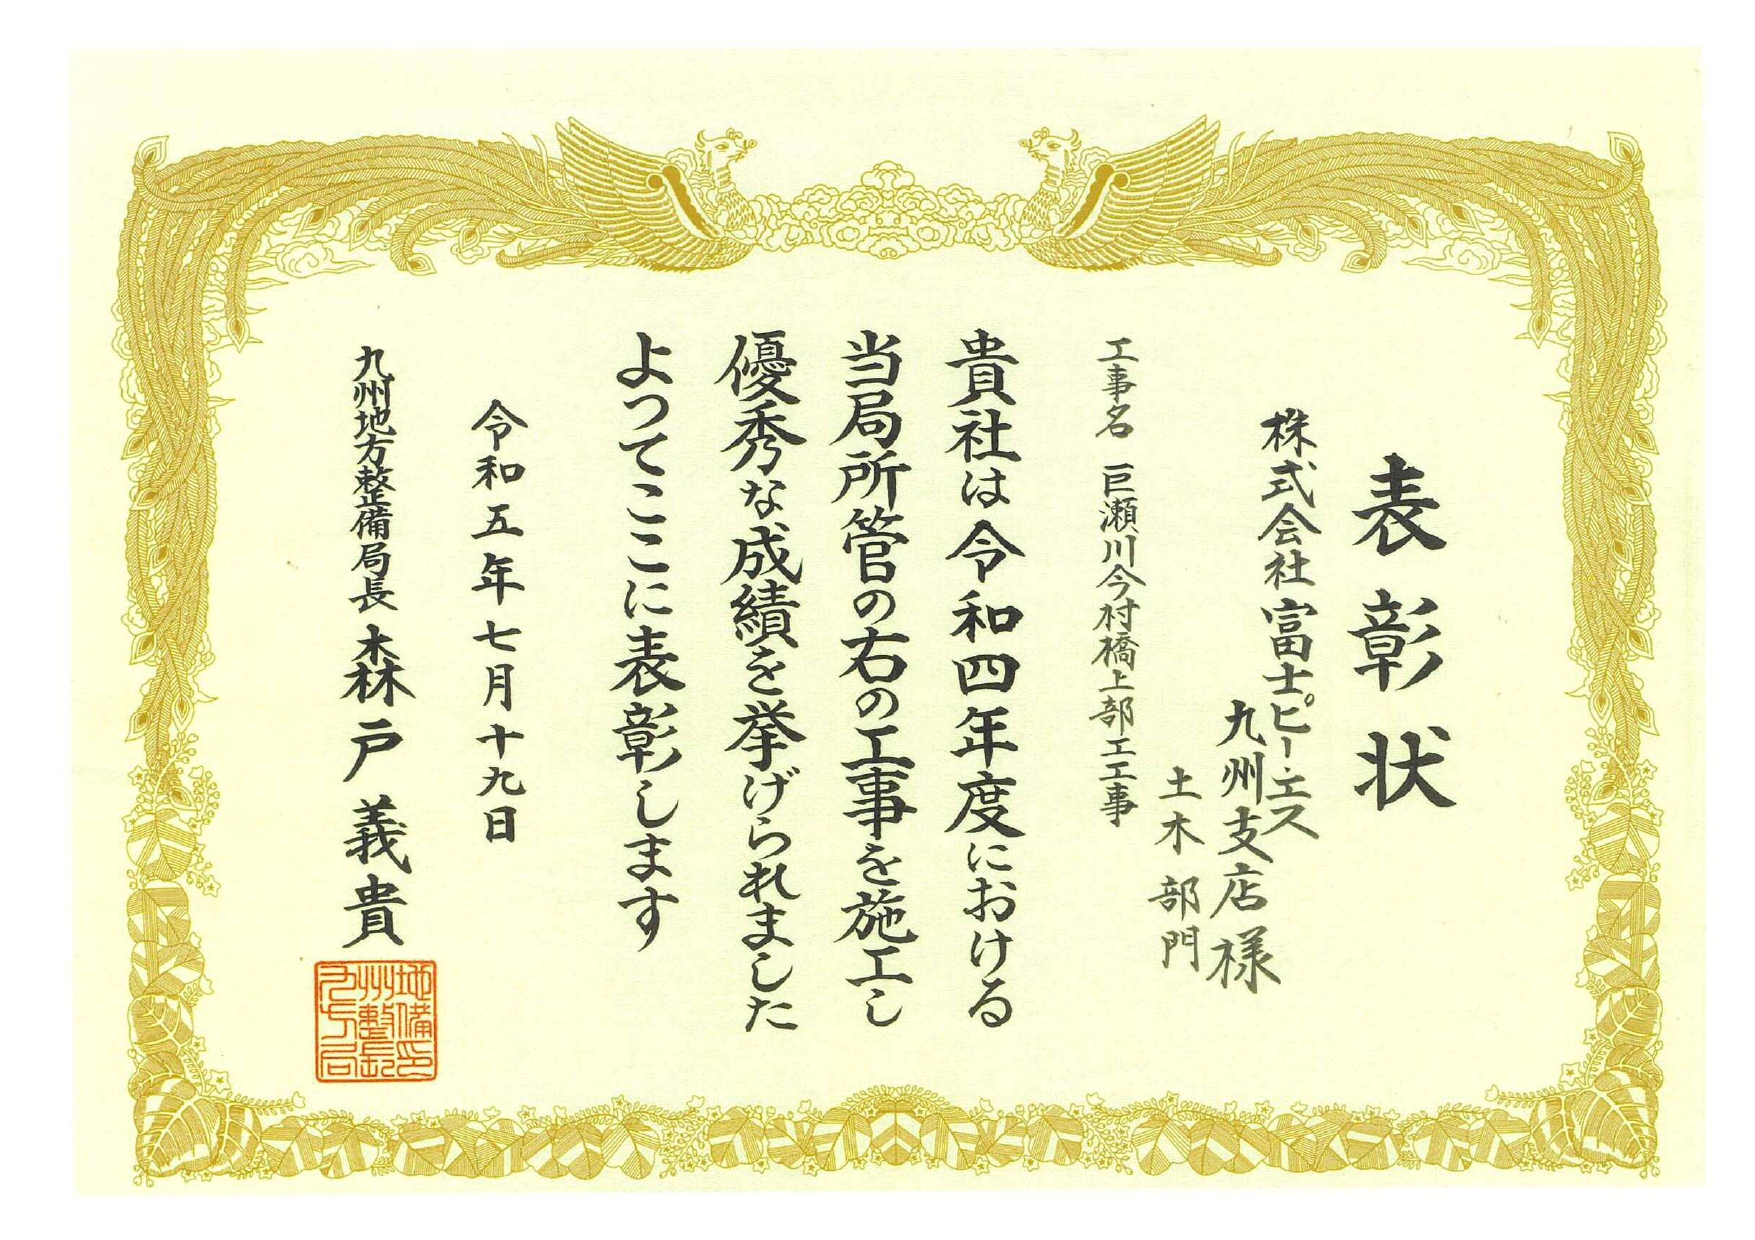 表彰状
株式会社富士ピー・エス
九州支店様
土木部門
工事名 巨瀬川今村橋上部工工事
貴社は令和四年度における
当局所管の右の工事を施工し
優秀な成績を挙げられました
よってここに表彰します
令和五年七月十九日
九州地方整備局長 森戸義貴
九州地方整備局長印